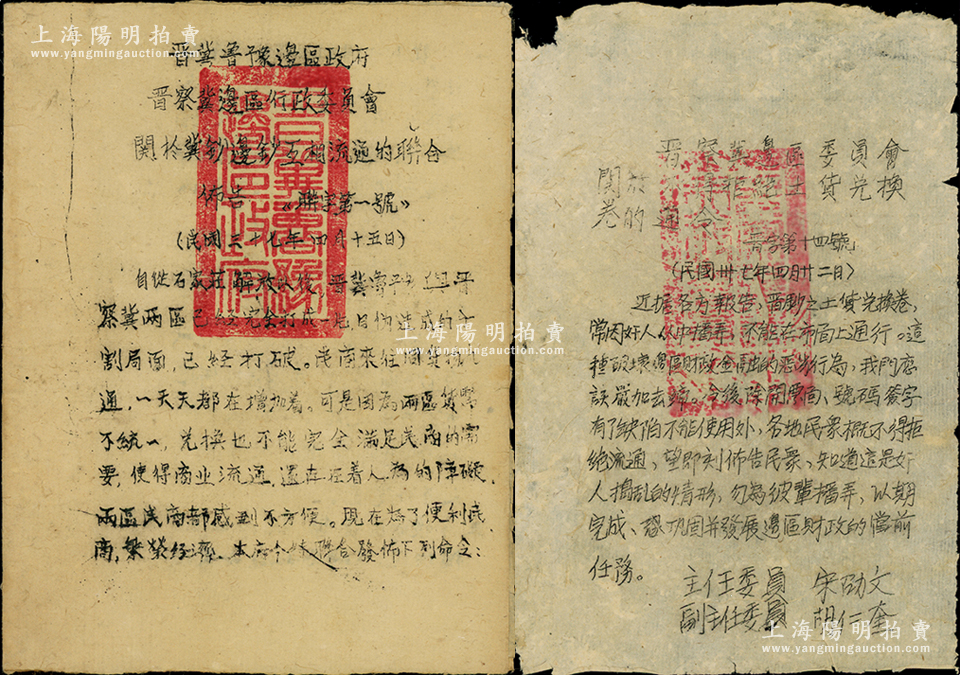 上海陽明拍賣
www.yangmingauction.com
晋冀鲁豫邊區政府
晋察冀邊區行政委員會
関於冀鈔邊鈔互相流通的聯合
佈告 《聯字第一號》
(民國三十七年四月十五日)
自從石家莊解放以後，晋冀魯豫與晋
察冀兩區已經完全打成一片，日偽造成的分
割局面，已經打破。民商來往
通，一天天都在增加着。可是因為兩區貨幣
不統一，兑換也不能完全滿足民商的需
要，使得商业流通，還存在着人為的障礙，
兩區民商都感到不方便。現在為了便利民
商，繁荣经濟，本府本會聯合發佈下列命令：
上海陽明拍賣
www.yangmingauction.com
晋察冀邊區委員會
関於 拒絕土貨兑換
卷的通令
晋字第十四號
(民國卅七年四月廿二日)
近据各方報告，晋劃之土貨兑換卷，
常因奸人从中播弄，不能在市面上通行。這
種破壞邊區財政金融的惡劣行為，我們應
該嚴加去 。今後除開票面、號碼簽字
有了缺陷不能使用外，各地民衆概不得拒
絕流通，望即刻佈告民衆、知道這是奸
人搗乱的情形，勿為彼輩播弄，以期
完成、 功固并發展邊區財政的當前
任務。
主任委員 宋劭文
副主任委員 胡仁奎
上海陽明拍賣
www.yangmingauction.com
上海陽明拍賣
www.yangmingauction.com
上海陽明拍賣
www.yangmingauction.com